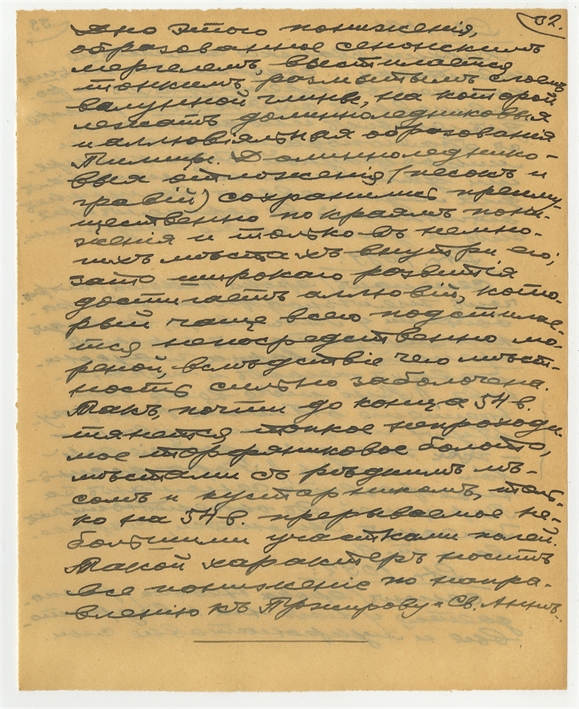 32.
Дно этого понижения,
образованное сенонскимъ
мергелемъ, выстилается
тонкимъ, размытымъ слоемъ
валунной глины, на которой
лежатъ долинноледниковыя
и аллювіяльныя образованія
Пилицы. Долинноледнико-
выя отложенія (песокъ и
гравій) сохранились преиму
щественно по краямъ пони-
женія и только въ немно-
гихъ мѣстахъ внутри его;
зато широкаго развитія
достигаетъ аллювій, кото-
рый чаще всего подстилае-
тся непосредственно мо-
реной, вслѣдствіе чего мѣст-
ность сильно заболочена.
Такъ почти до конца 54 в.
тянется топкое непроходи
мое торфяниковое болото,
мѣстами съ рѣдкимъ лѣ-
сомъ и кустарникомъ, толь-
ко на 54 в. прерываемое не-
большими участками полей.
Такой характеръ носитъ
все пониженіе по напра-
вленію къ Пржирову и Св. Аннѣ.